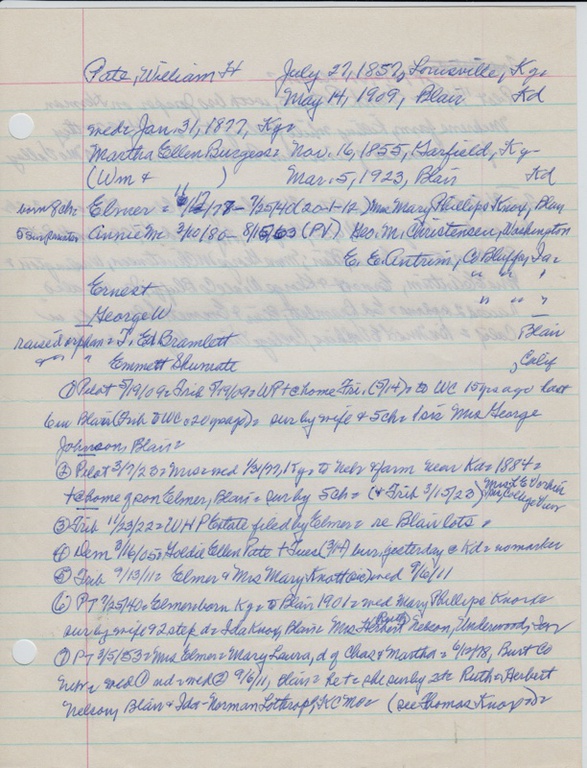 Pate, William H July 27, 1857, Louisville, Ky.
May 14, 1909, Blair Kd
wed= Jan. 31, 1877, Ky.
Martha Ellen Burgess= Nov. 16, 1855, Garfield, Ky.
(Wm & ) Mar. 5, 1923, Blair Kd
Elmer = /77- 7/25/40 (20-1-12) Mrs Mary Phillips Knox, Blair
Annie M. 3/10/80- (PV) Geo. M. Christensen, Washington
E. E. Antrim, C. Bluffs, Ia=
Ernest " " "
George W " " "
raised orphan= T. Ed Bramlett Blair
" " Emmett Shumate , Calif
① Pilot 5/19/09= Trib 5/19/09= WP + @ home Fri. (5/14)= to WC 15 yrs ago last
6 in Blair (Trib to WC 20 y ago)= sur by wife & 5 ch= 1 sis Mrs George
Johnson, Blair=
② Pilot 3/7/23= Mrs= wed 1/31/77, Ky= to Nebr & farm near Kd= 1884=
+ @ home of son Elmer, Blair= sur by 5 ch= (& Trib 3/15/23)
③ Trib 11/23/22= WHP Estate filed by Elmer= re Blair lots=
④ Dem 3/16/05= Goldie Ellen Pate + Tues (3/14) bur. yesterday @ Kd= no marker
⑤ Trib 9/13/11= Elmer & Mrs Mary Knott (sic) wed 9/6/11
⑥ PT 7/25/40= Elmer= born Ky= to Blair 1901= wed Mary Phillips Knox=
sur by wife & 2 step d= Ida Knox, Blair= Mrs Herbert Nelson, Underwood, Ia=
⑦ PT 3/5/53= Mrs Elmer= Mary Laura, d of Chas & Martha= 6/12/78, Burt Co
Nebr= wed ① wed ② 9/6/11, Blair= he + she sur by 2 ch Ruth= Herbert
Nelson, Blair & Ida= Norman Lothrop, KC Mo= (see Thomas Knox)=